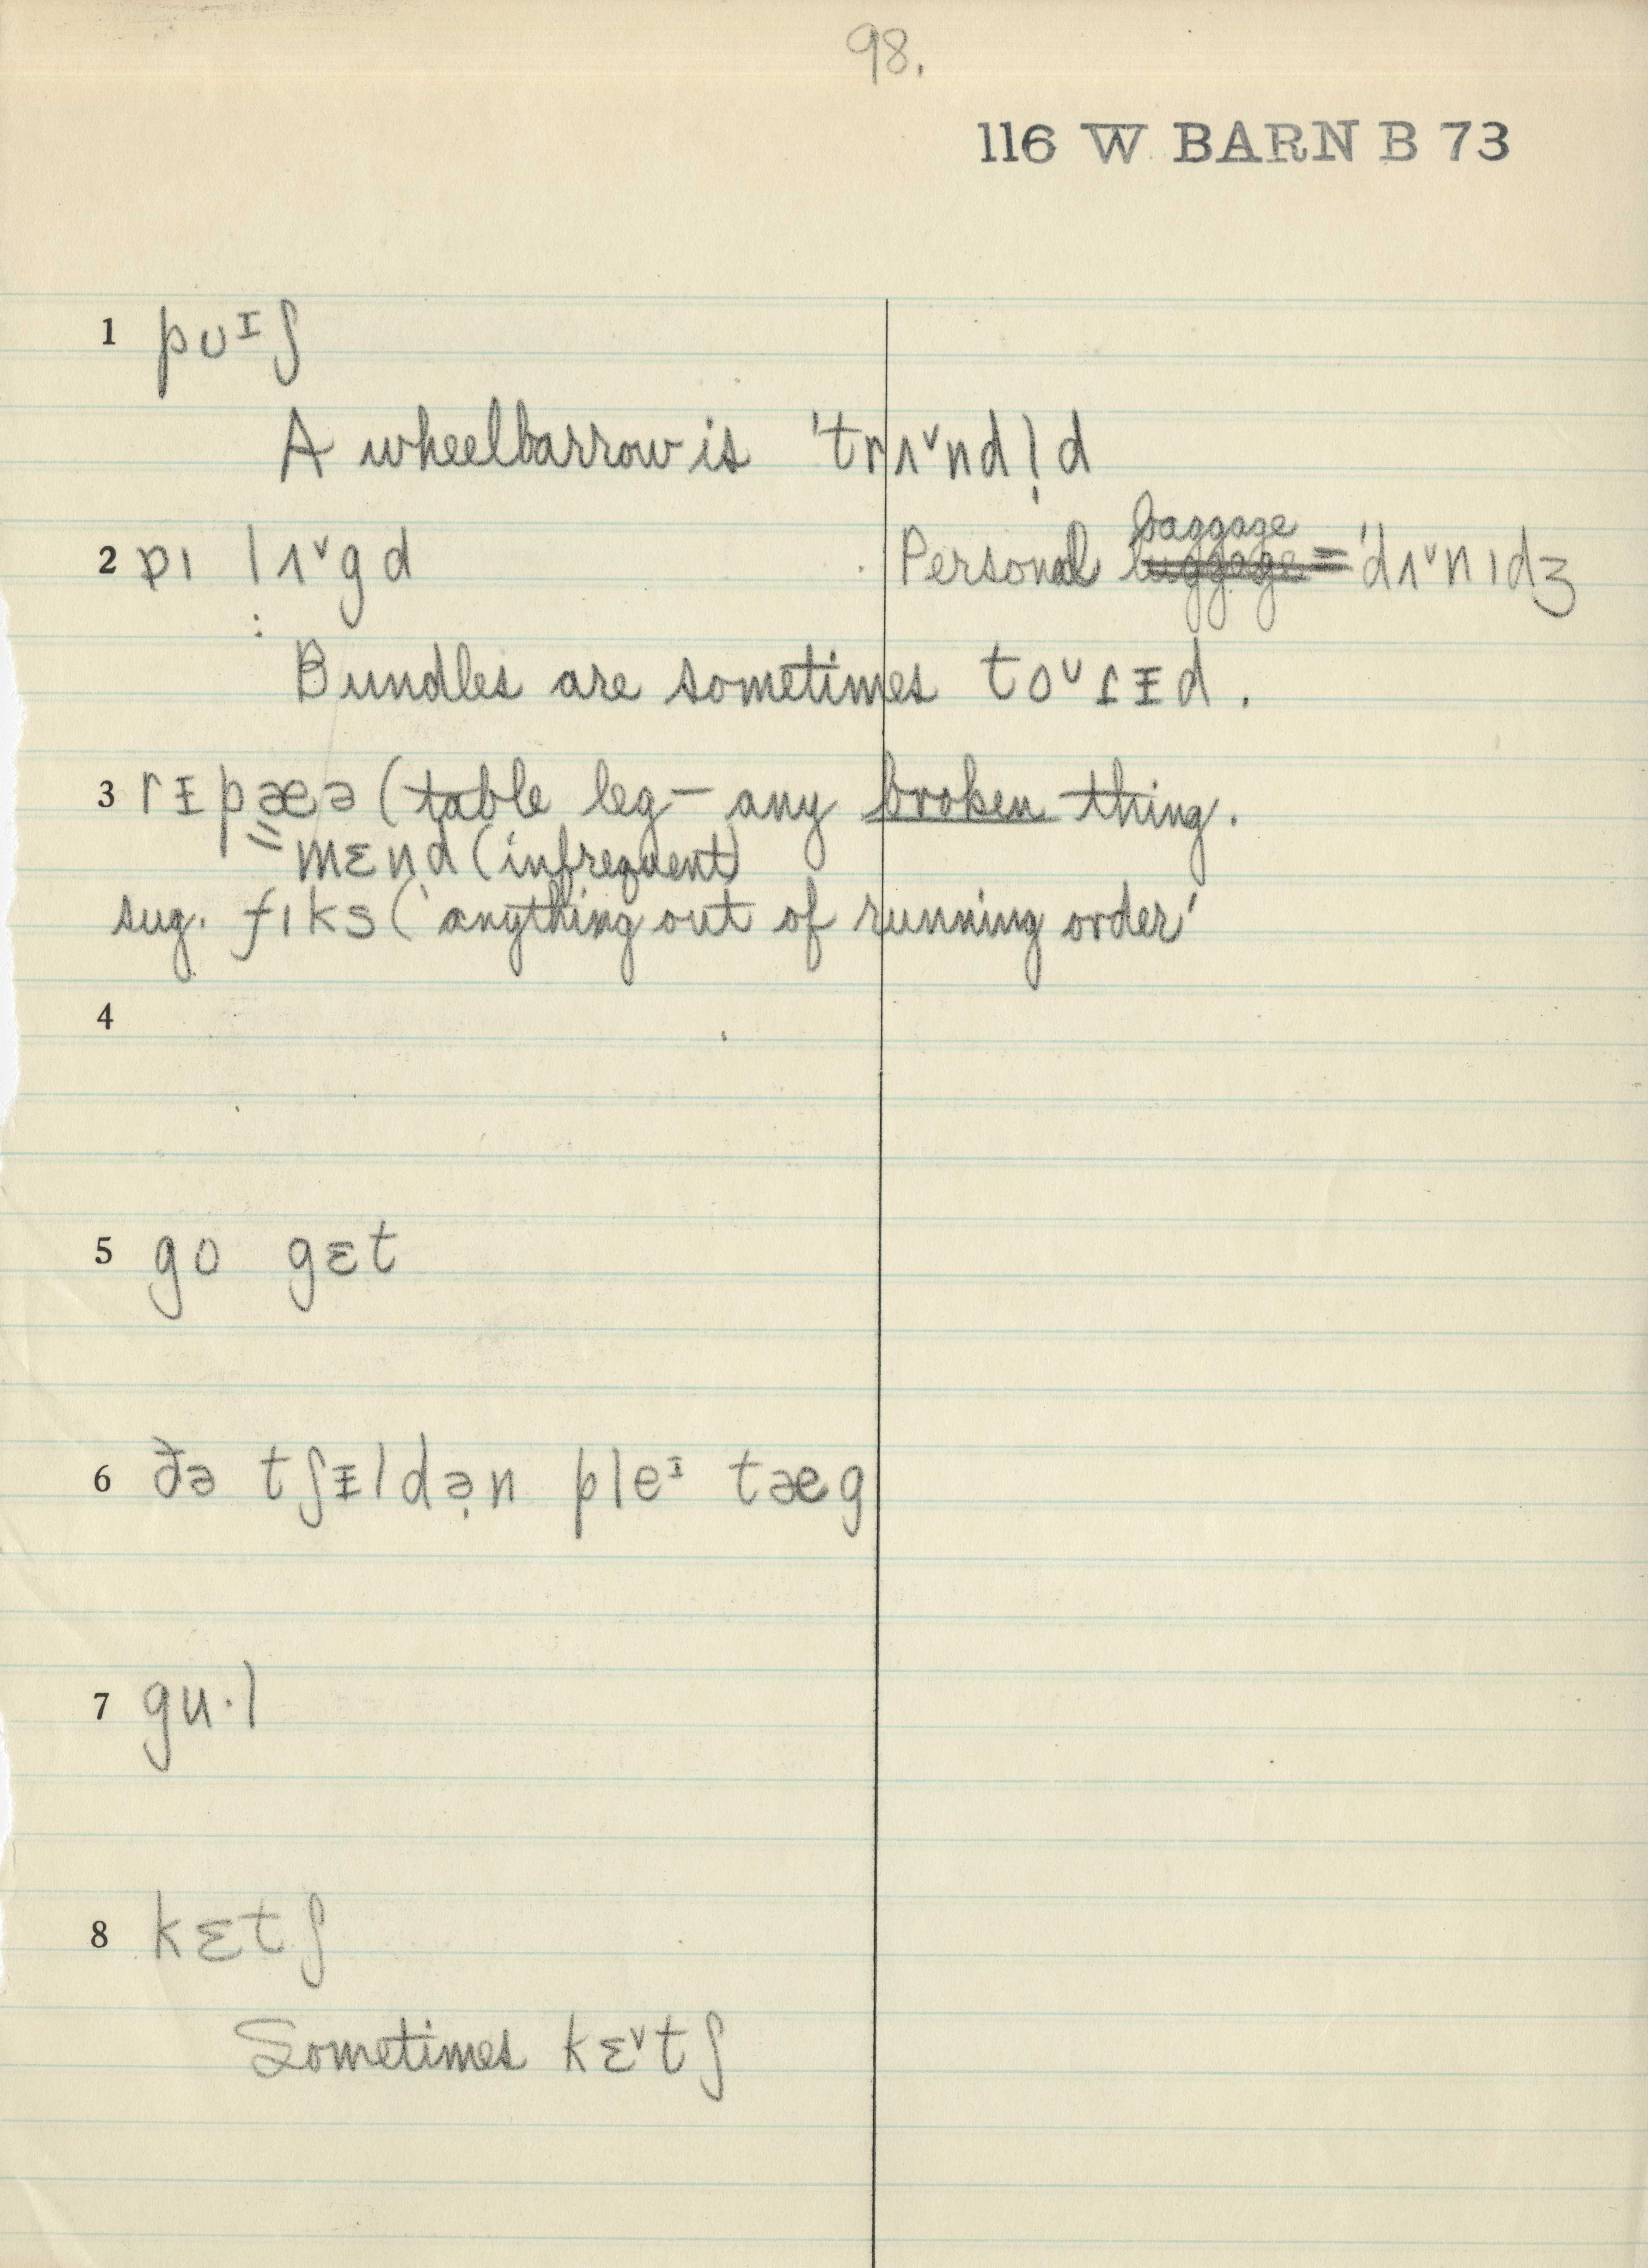 98.
116 W BARN B 73
1 pʊᶦʃ
A wheelbarrow is 'trʌ˅ndl̩d
2 pɪ lʌ˅gd Personal baggage = 'dʌ˅nɪdʒ
Bundles are sometimes to˅ɾᵻd.
3 rᵻpæə (table leg — any broken thing.
= mɛnd (infrequent)
sug. fɪks ('anything out of running order'
4
5 go gɛt
6 ðə tʃᵻldə̣n pleᶦ tæg
7 gu·l
8 kɛtʃ
Sometimes kɛ˅tʃ